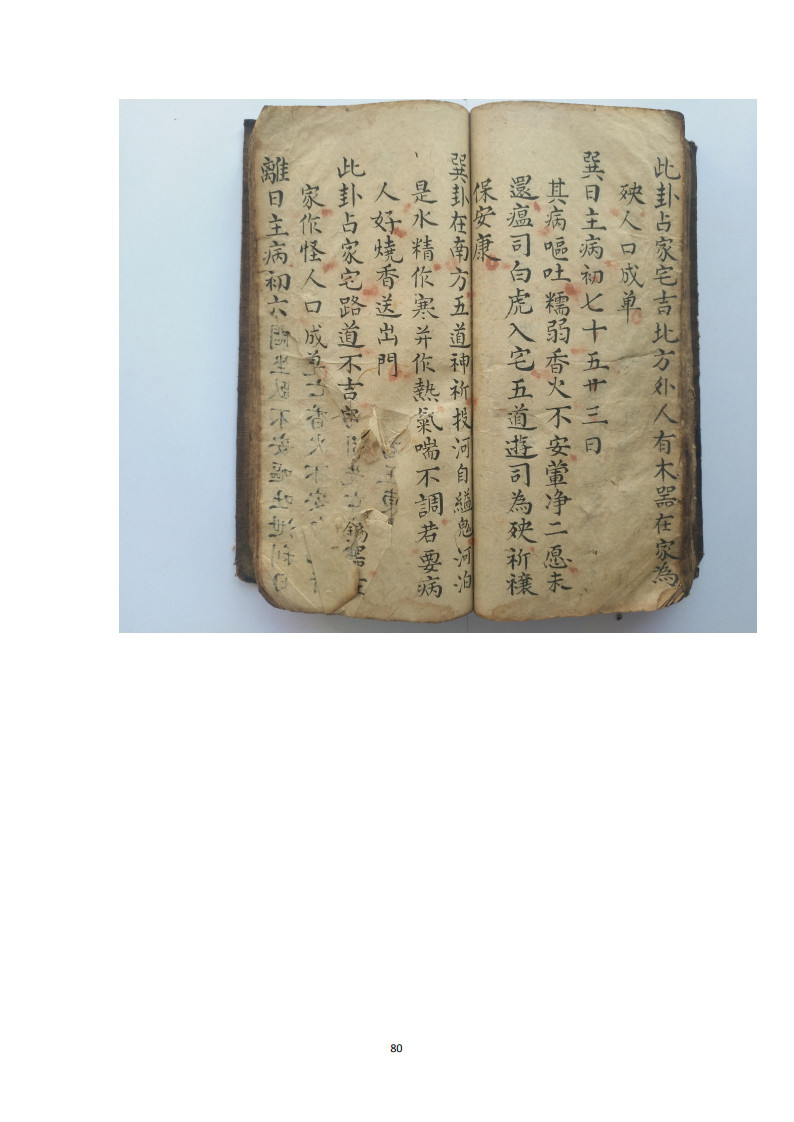 此卦占家宅吉北方外人有木器在家為
殃人口成单
巽日主病初七十五廿三日
其病嘔吐糯弱香火不安葷净二愿未
還瘟司白虎入宅五道遊司為殃祈禳
保安康
巽卦在南方五道神祈投河自縊鬼河泊
是水精作寒并作熱氣喘不調若要病
人好燒香送出門
此卦占家宅路道不吉
家作怪人口成单香火不安
離日主病初六坐臥不安嘔吐泄利日
80